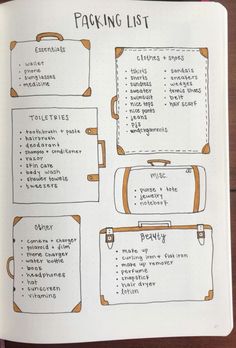 PACKING LIST
Essentials
• wallet
• phone
• sunglasses
• medicine
clothes + shoes
• tshirts
• shirts
• sundress
• sweater
• swimsuit
• nice tops
• nice pants
• jeans
• pjs
• undergarments
• sandals
• sneakers
• wedges
• tennis shoes
• belt
• hair scarf
TOILETRIES
• toothbrush + paste
• hairbrush
• deodorant
• shampoo + conditioner
• razor
• skin care
• body wash
• shower towels
• tweezers
Misc.
• purse + tote
• jewelry
• notebook
Other
• camera + charger
• polaroid + film
• phone charger
• water bottle
• book
• headphones
• hat
• sunscreen
• vitamins
Beauty
• make up
• curling iron + flat iron
• make up remover
• perfume
• chapstick
• hair dryer
• lotion